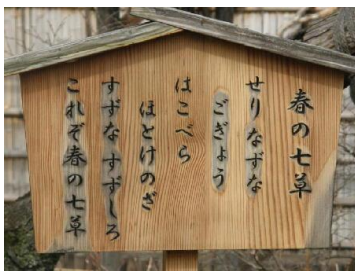 春の七草
せりなずな
ごぎょう
はこべら
ほとけのざ
すずなすずしろ
これぞ春の七草